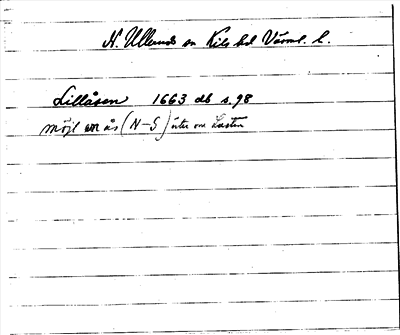 N. Ullerud sn Kils hd Värml. l.
Lillåsen 1663 db s. 98
möjl av ås (N-S) öster om